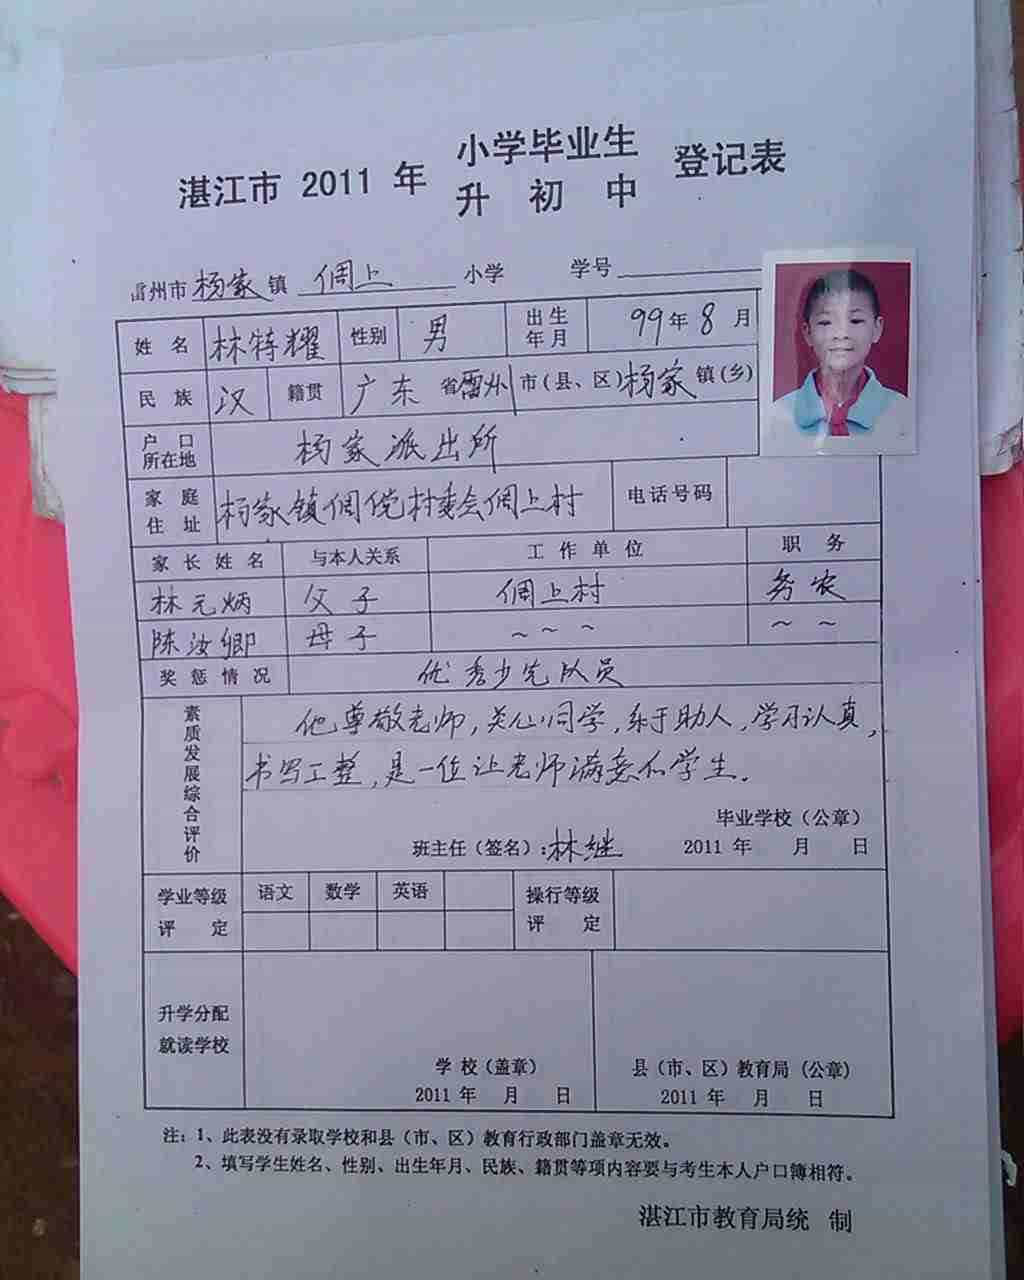 湛江市 2011 年 小学毕业生 登记表
升 初 中
雷州市 杨家 镇 倜上 小学 学号
姓 名 林特耀 性别 男 出生年月 99 年 8 月
民 族 汉 籍贯 广东 省 雷州 市(县、区) 杨家 镇(乡)
户 口 所在地 杨家派出所
家 庭 住 址 杨家镇倜党村委会倜上村 电话号码
家 长 姓 名 与本人关系 工 作 单 位 职 务
林元炳 父子 倜上村 务农
陈汝卿 母子 ~ ~ ~ ~ ~
奖 惩 情 况 优秀少先队员
素质发展综合评价
他尊敬老师,关心同学,乐于助人,学习认真,
书写工整,是一位让老师满意的学生.
毕业学校(公章)
班主任(签名):林继 2011 年 月 日
学业等级 评 定 语文 数学 英语 操行等级 评 定
升学分配
就读学校
学 校(盖章) 县(市、区)教育局(公章)
2011 年 月 日 2011 年 月 日
注:1、此表没有录取学校和县(市、区)教育行政部门盖章无效。
2、填写学生姓名、性别、出生年月、民族、籍贯等项内容要与考生本人户口簿相符。
湛江市教育局统 制